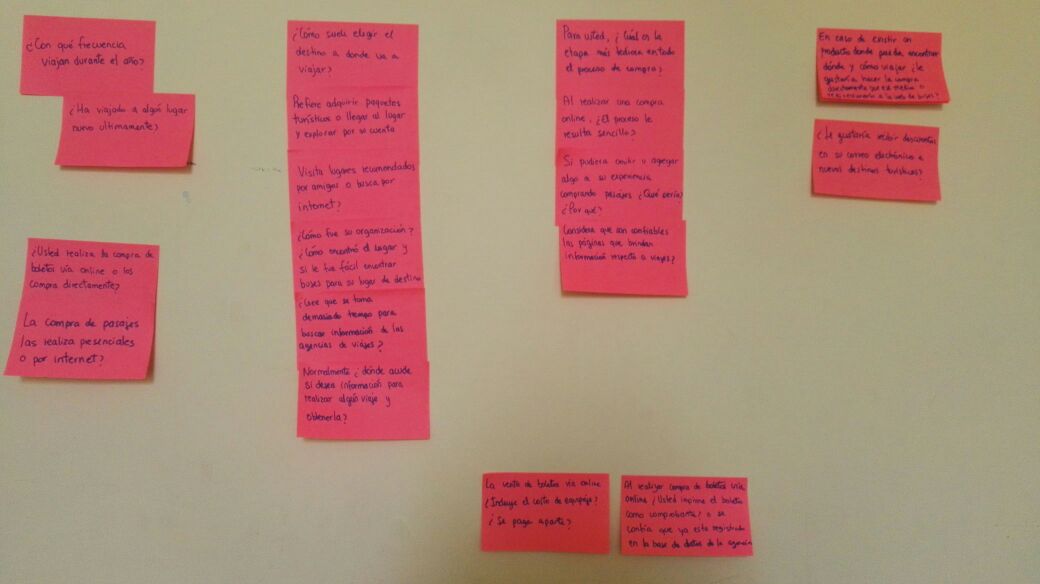 ¿Con qué frecuencia
viajan durante el año?
¿Ha viajado a algún lugar
nuevo ultimamente?
¿Usted realiza la compra de
boletos vía online o los
compra directamente?
La compra de pasajes
las realiza presenciales
o por internet?
¿Cómo suele elegir el
destino a donde va a
viajar?
Prefiere adquirir paquetes
turísticos o llegar al lugar
y explorar por su cuenta
Visita lugares recomendados
por amigos o busca por
internet?
¿Cómo fue su organización?
¿Cómo encontró el lugar y
si le fue fácil encontrar
buses para su lugar de destino
¿Cree que se toma
demasiado tiempo para
buscar información de las
agencias de viajes?
Normalmente ¿dónde acude
si desea información para
realizar algún viaje y
obtenerla?
Para usted, ¿Cuál es la
etapa más tediosa en todo
el proceso de compra?
Al realizar una compra
online, ¿El proceso le
resulta sencillo?
Si pudiera omitir o agregar
algo a su experiencia
comprando pasajes ¿Qué sería?
¿Por qué?
Considera que son confiables
las páginas que brindan
información respecto a viajes?
En caso de existir un
producto donde pueda encontrar
dónde y cómo viajar ¿le
gustaría hacer la compra
directamente por ese medio o
a la web de buses?
¿Le gustaría recibir descuentos
en su correo electrónico a
nuevos destinos turísticos?
La venta de boletos vía online
¿Incluye el costo de equipaje?
¿Se paga aparte?
Al realizar compra de boletos vía
online ¿Usted imprime el boleto
como comprobante? o se
confía que ya esta registrado
en la base de datos de la agencia